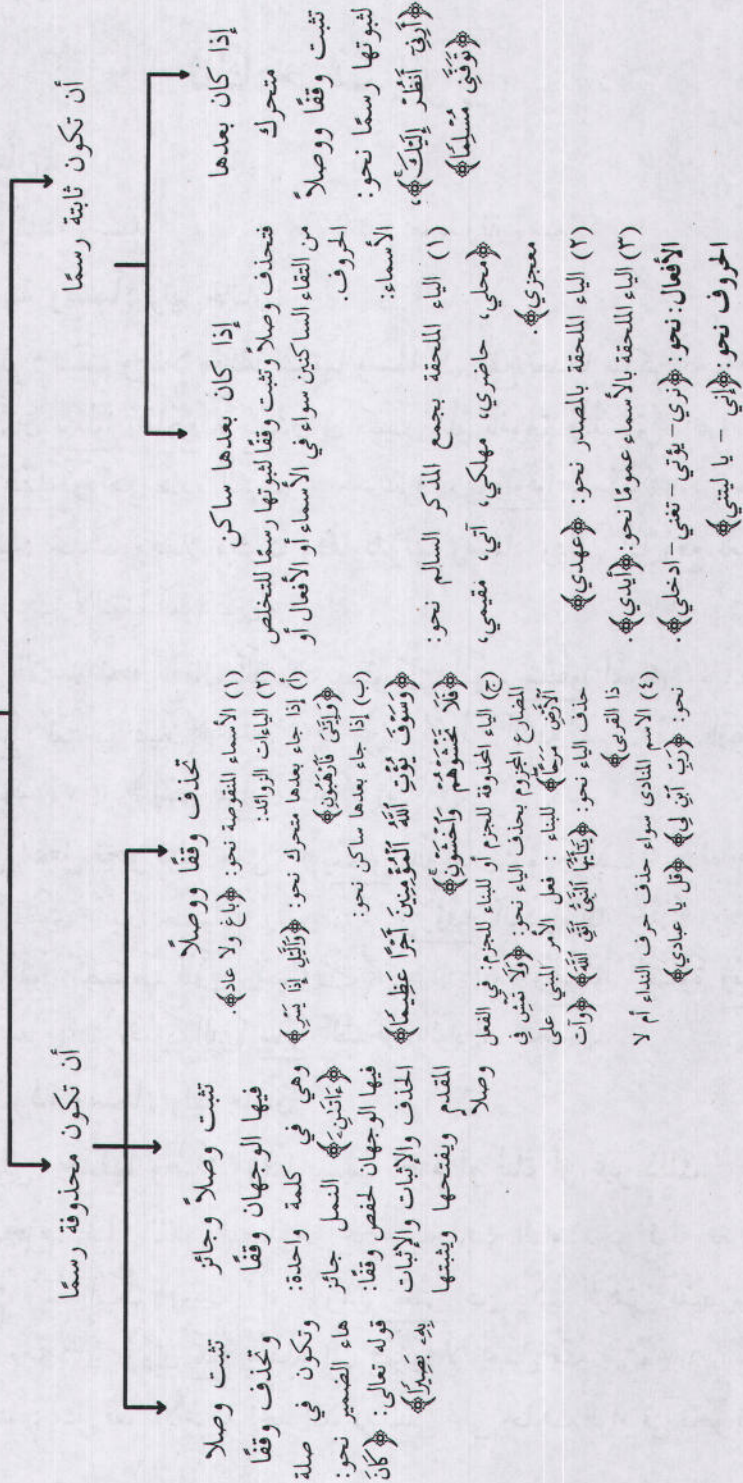 أن تكون ثابتة رسمًا
إذا كان بعدها
متحرك
تثبت وقفًا ووصلاً
لثبوتها رسمًا نحو:
﴿أَرِنِىٓ أَنظُرْ إِلَيْكَ﴾،
﴿تَوَفَّنِى مُسْلِمًا﴾
إذا كان بعدها ساكن
فتحذف وصلاً وتثبت وقفًا لثبوتها رسمًا للتخلص
من التقاء الساكنين سواء في الأسماء أو الأفعال أو
الحروف.
الأسماء:
(١) الياء الملحقة بجمع المذكر السالم نحو:
﴿محلي، حاضري، مهلكي، آتي، مقيمي،
معجزي﴾.
(٢) الياء الملحقة بالمصادر نحو: ﴿عهدي﴾
(٣) الياء الملحقة بالأسماء عمومًا نحو: ﴿أيدي﴾.
الأفعال: نحو: ﴿نري - يؤتي - تغني - ادخلي﴾.
الحروف نحو: ﴿إني - يا ليتني﴾
أن تكون محذوفة رسمًا
تحذف وقفًا ووصلاً
(١) الأسماء المنقوصة نحو: ﴿باغ ولا عاد﴾.
(٢) الياءات الزوائد:
(أ) إذا جاء بعدها متحرك نحو: ﴿وَٱلَّيْلِ إِذَا يَسْرِ﴾
﴿وَإِيَّٰىَ فَٱرْهَبُونِ﴾
(ب) إذا جاء بعدها ساكن نحو:
﴿وَسَوْفَ يُؤْتِ ٱللَّهُ ٱلْمُؤْمِنِينَ أَجْرًا عَظِيمًا﴾
﴿فَلَا تَخْشَوْهُمْ وَٱخْشَوْنِ﴾
(ج) الياء المحذوفة للجزم أو للبناء للجزم: في الفعل
المضارع المجزوم بحذف الياء نحو: ﴿وَلَا تَمْشِ فِى
ٱلْأَرْضِ مَرَحًا﴾ للبناء: فعل الأمر المبني على
حذف الياء نحو: ﴿يَٰٓأَيُّهَا ٱلنَّبِىُّ ٱتَّقِ ٱللَّهَ﴾ ﴿وآت
ذا القربى﴾
(٤) الاسم المنادى سواء حذف حرف النداء أم لا
نحو: ﴿رَبِّ ٱبْنِ لِى﴾ ﴿قل يا عبادي﴾
تثبت وصلاً وجائز
فيها الوجهان وقفًا
وهي في كلمة واحدة:
﴿ءَاتَىٰنِۦَ﴾ النمل جائز
فيها الوجهان لحفص وقفًا:
الحذف والإثبات والإثبات
المقدم ويفتحها ويثبتها
وصلا
تثبت وصلا
وتحذف وقفًا
وتكون في صلة
هاء الضمير نحو:
قوله تعالى: ﴿كَانَ
بِهِۦ بَصِيرًا﴾